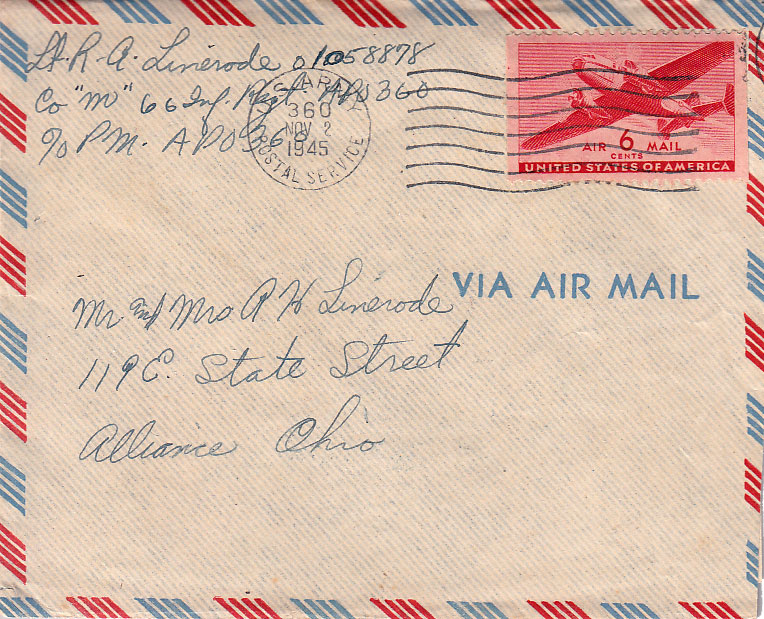 Lt. R. A. Linerode 01058878
Co "M" 66 Inf Regt APO 360
% P.M. APO 360
U.S. ARMY
360
NOV 2
1945
POSTAL SERVICE
AIR 6 MAIL
CENTS
UNITED STATES OF AMERICA
VIA AIR MAIL
Mr. and Mrs R H Linerode
119 E. State Street
Alliance Ohio